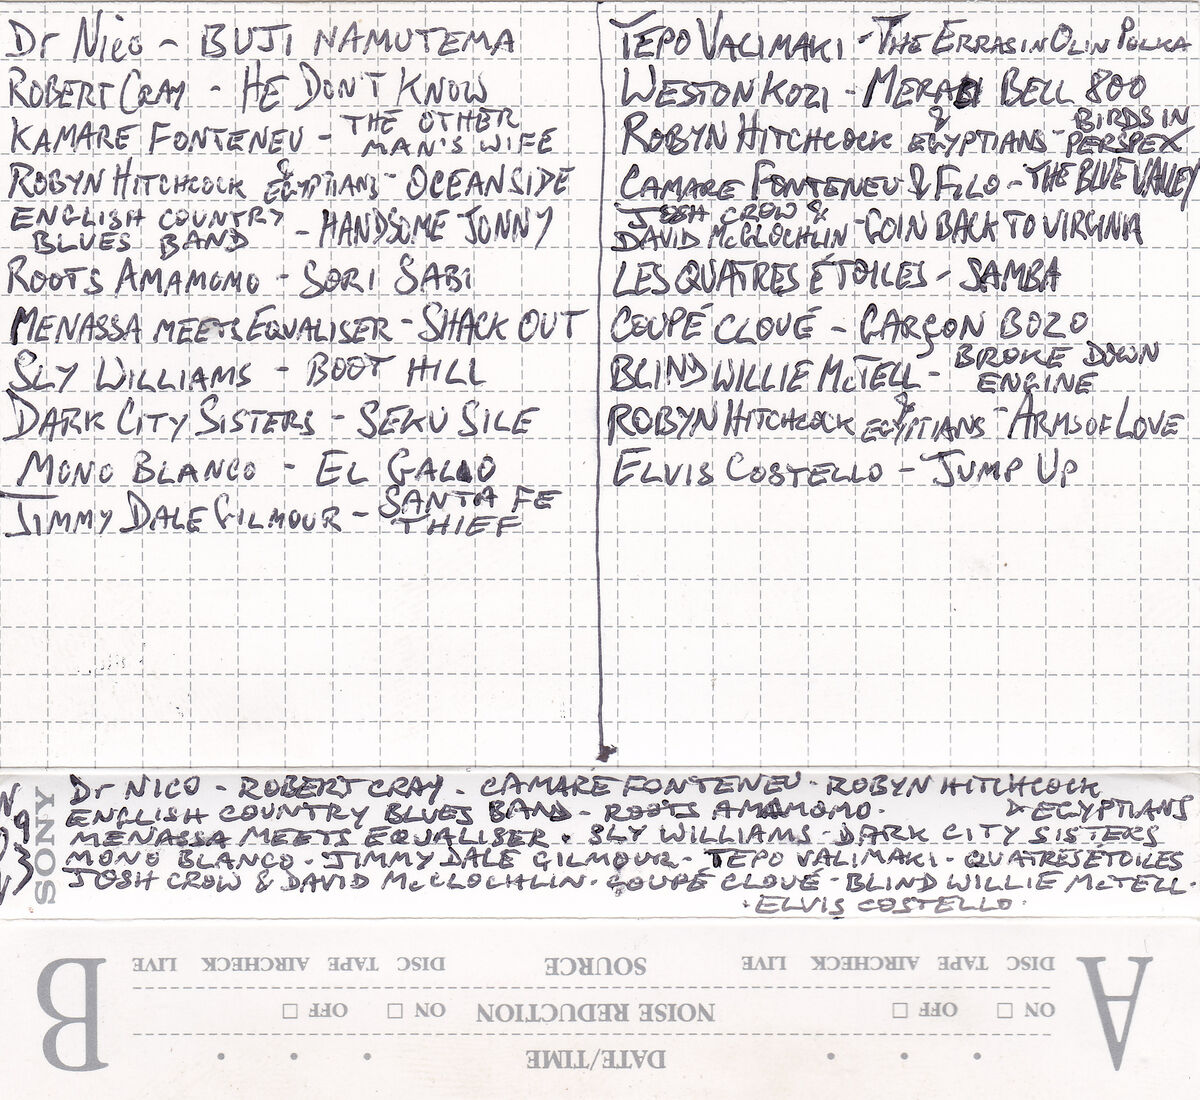 Dr Nico - BUJI NAMUTEMA
ROBERT CRAY - HE DON'T KNOW
KAMARE FONTENEU - THE OTHER MAN'S WIFE
ROBYN HITCHCOCK & EGYPTIANS - OCEANSIDE
ENGLISH COUNTRY BLUES BAND - HANDSOME JONNY
ROOTS AMAMOMO - SORI SABI
MENASSA MEETS EQUALISER - SHACK OUT
SLY WILLIAMS - BOOT HILL
DARK CITY SISTERS - SEKU SILE
MONO BLANCO - EL GALLO
JIMMY DALE GILMOUR - SANTA FE THIEF
TEPO VALIMAKI - THE ERRASIN OLIN POLKA
WESTON KOZI - MERABI BELL 800
ROBYN HITCHCOCK & EGYPTIANS - BIRDS IN PERSPEX
CAMARE FONTENEU & FILO - THE BLUE VALLEY
JOSH CROW & DAVID McCLOCHLIN - GOIN BACK TO VIRGINIA
LES QUATRES ÉTOILES - SAMBA
COUPÉ CLOUÉ - GARÇON BOZO
BLIND WILLIE McTELL - BROKE DOWN ENGINE
ROBYN HITCHCOCK & EGYPTIANS - ARMS OF LOVE
ELVIS COSTELLO - JUMP UP
SONY
Dr NICO - ROBERT CRAY - CAMARE FONTENEU - ROBYN HITCHCOCK
ENGLISH COUNTRY BLUES BAND - ROOTS AMAMOMO. & EGYPTIANS
MENASSA MEETS EQUALISER. SLY WILLIAMS - DARK CITY SISTERS
MONO BLANCO - JIMMY DALE GILMOUR - TEPO VALIMAKI - QUATRES ÉTOILES
JOSH CROW & DAVID McCLOCHLIN - COUPÉ CLOUÉ - BLIND WILLIE McTELL.
. ELVIS COSTELLO.
A
DATE/TIME
NOISE REDUCTION
ON OFF
ON OFF
SOURCE
DISC TAPE AIRCHECK LIVE
DISC TAPE AIRCHECK LIVE
B